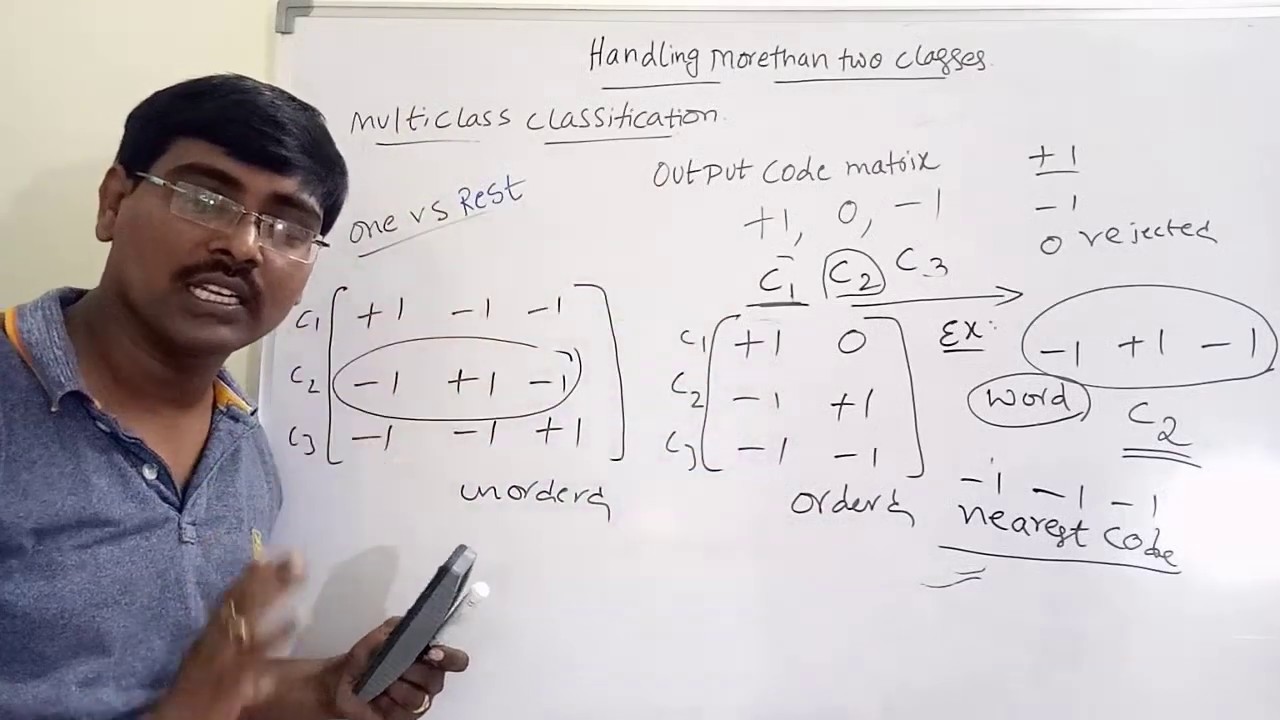 Handling morethan two classes.
multiclass classification.
one vs Rest
C1 +1 -1 -1
C2 -1 +1 -1
C3 -1 -1 +1
unorderd
output code matrix
+1, 0, -1
C1 C2 C3
C1 +1 0
C2 -1 +1
C3 -1 -1
orderd
+1
-1
0 rejected
Ex:
-1 +1 -1
word
C2
-1 -1 -1
nearest code